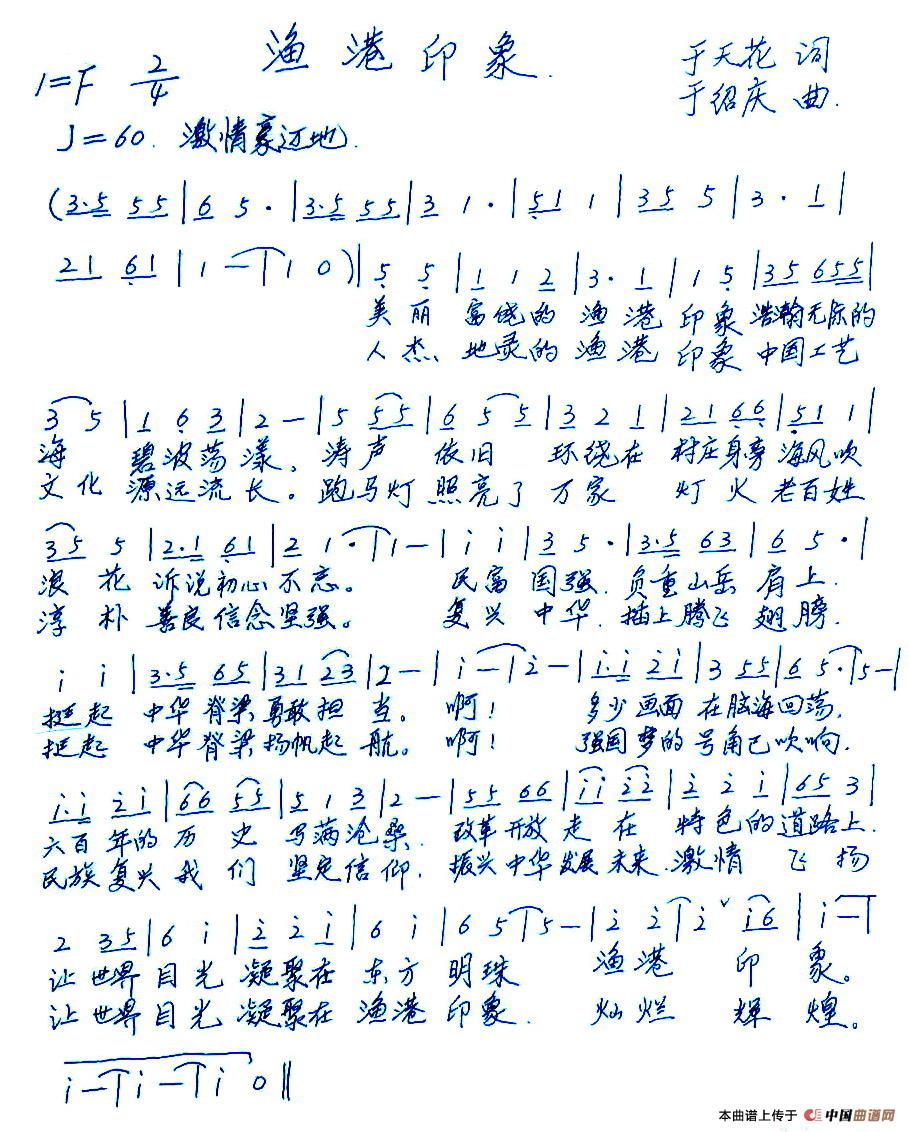 渔港印象.
1=F 2/4 于天花 词
于绍庆 曲.
♩=60. 激情豪迈地.
(3·5 55|6 5·|3·5 55|3 1·|51 1|35 5|3· 1|
21 61|1 —|1 0)|5 5|1 1 2|3· 1|1 5|35 655|
美丽 富饶的 渔港 印象 浩瀚无际的
人杰 地灵的 渔港 印象 中国工艺
3 5|1 6 3|2 —|5 55|6 5 5|3 2 1|21 66|51 1|
海 碧波荡漾、涛声 依旧 环绕在 村庄身旁 海风吹
文化 源远流长。跑马灯 照亮了 万家 灯火 老百姓
35 5|2·1 61|2 1·|1 —|i i|3 5·|3·5 63|6 5·|
浪花 诉说初心不忘。 民富 国强. 负重山岳 肩上.
淳朴 善良信念坚强。 复兴 中华. 插上腾飞 翅膀.
i i|3·5 65|31 23|2 —|i —|2 —|i·i 2i|3 55|6 5·|5 —|
挺起 中华脊梁勇敢担当。啊! 多少画面 在脑海回荡.
挺起 中华脊梁扬帆起航。啊! 强国梦的 号角已吹响.
i·i 2i|66 55|5 1 3|2 —|55 66|ii 22|2 2 i|65 3|
六百年的 历史 写满沧桑. 改革开放 走在 特色的道路上.
民族复兴 我们 坚定信仰. 振兴中华发展未来.激情 飞扬
2 35|6 i|2 2 i|6 i|6 5|5 —|2 2|2 ˇ i6|i —|
让世界 目光 凝聚在 东方 明珠 渔港 印 象。
让世界 目光 凝聚在 渔港 印象. 灿烂 辉 煌。
i —|i —|i 0‖
本曲谱上传于 中国曲谱网